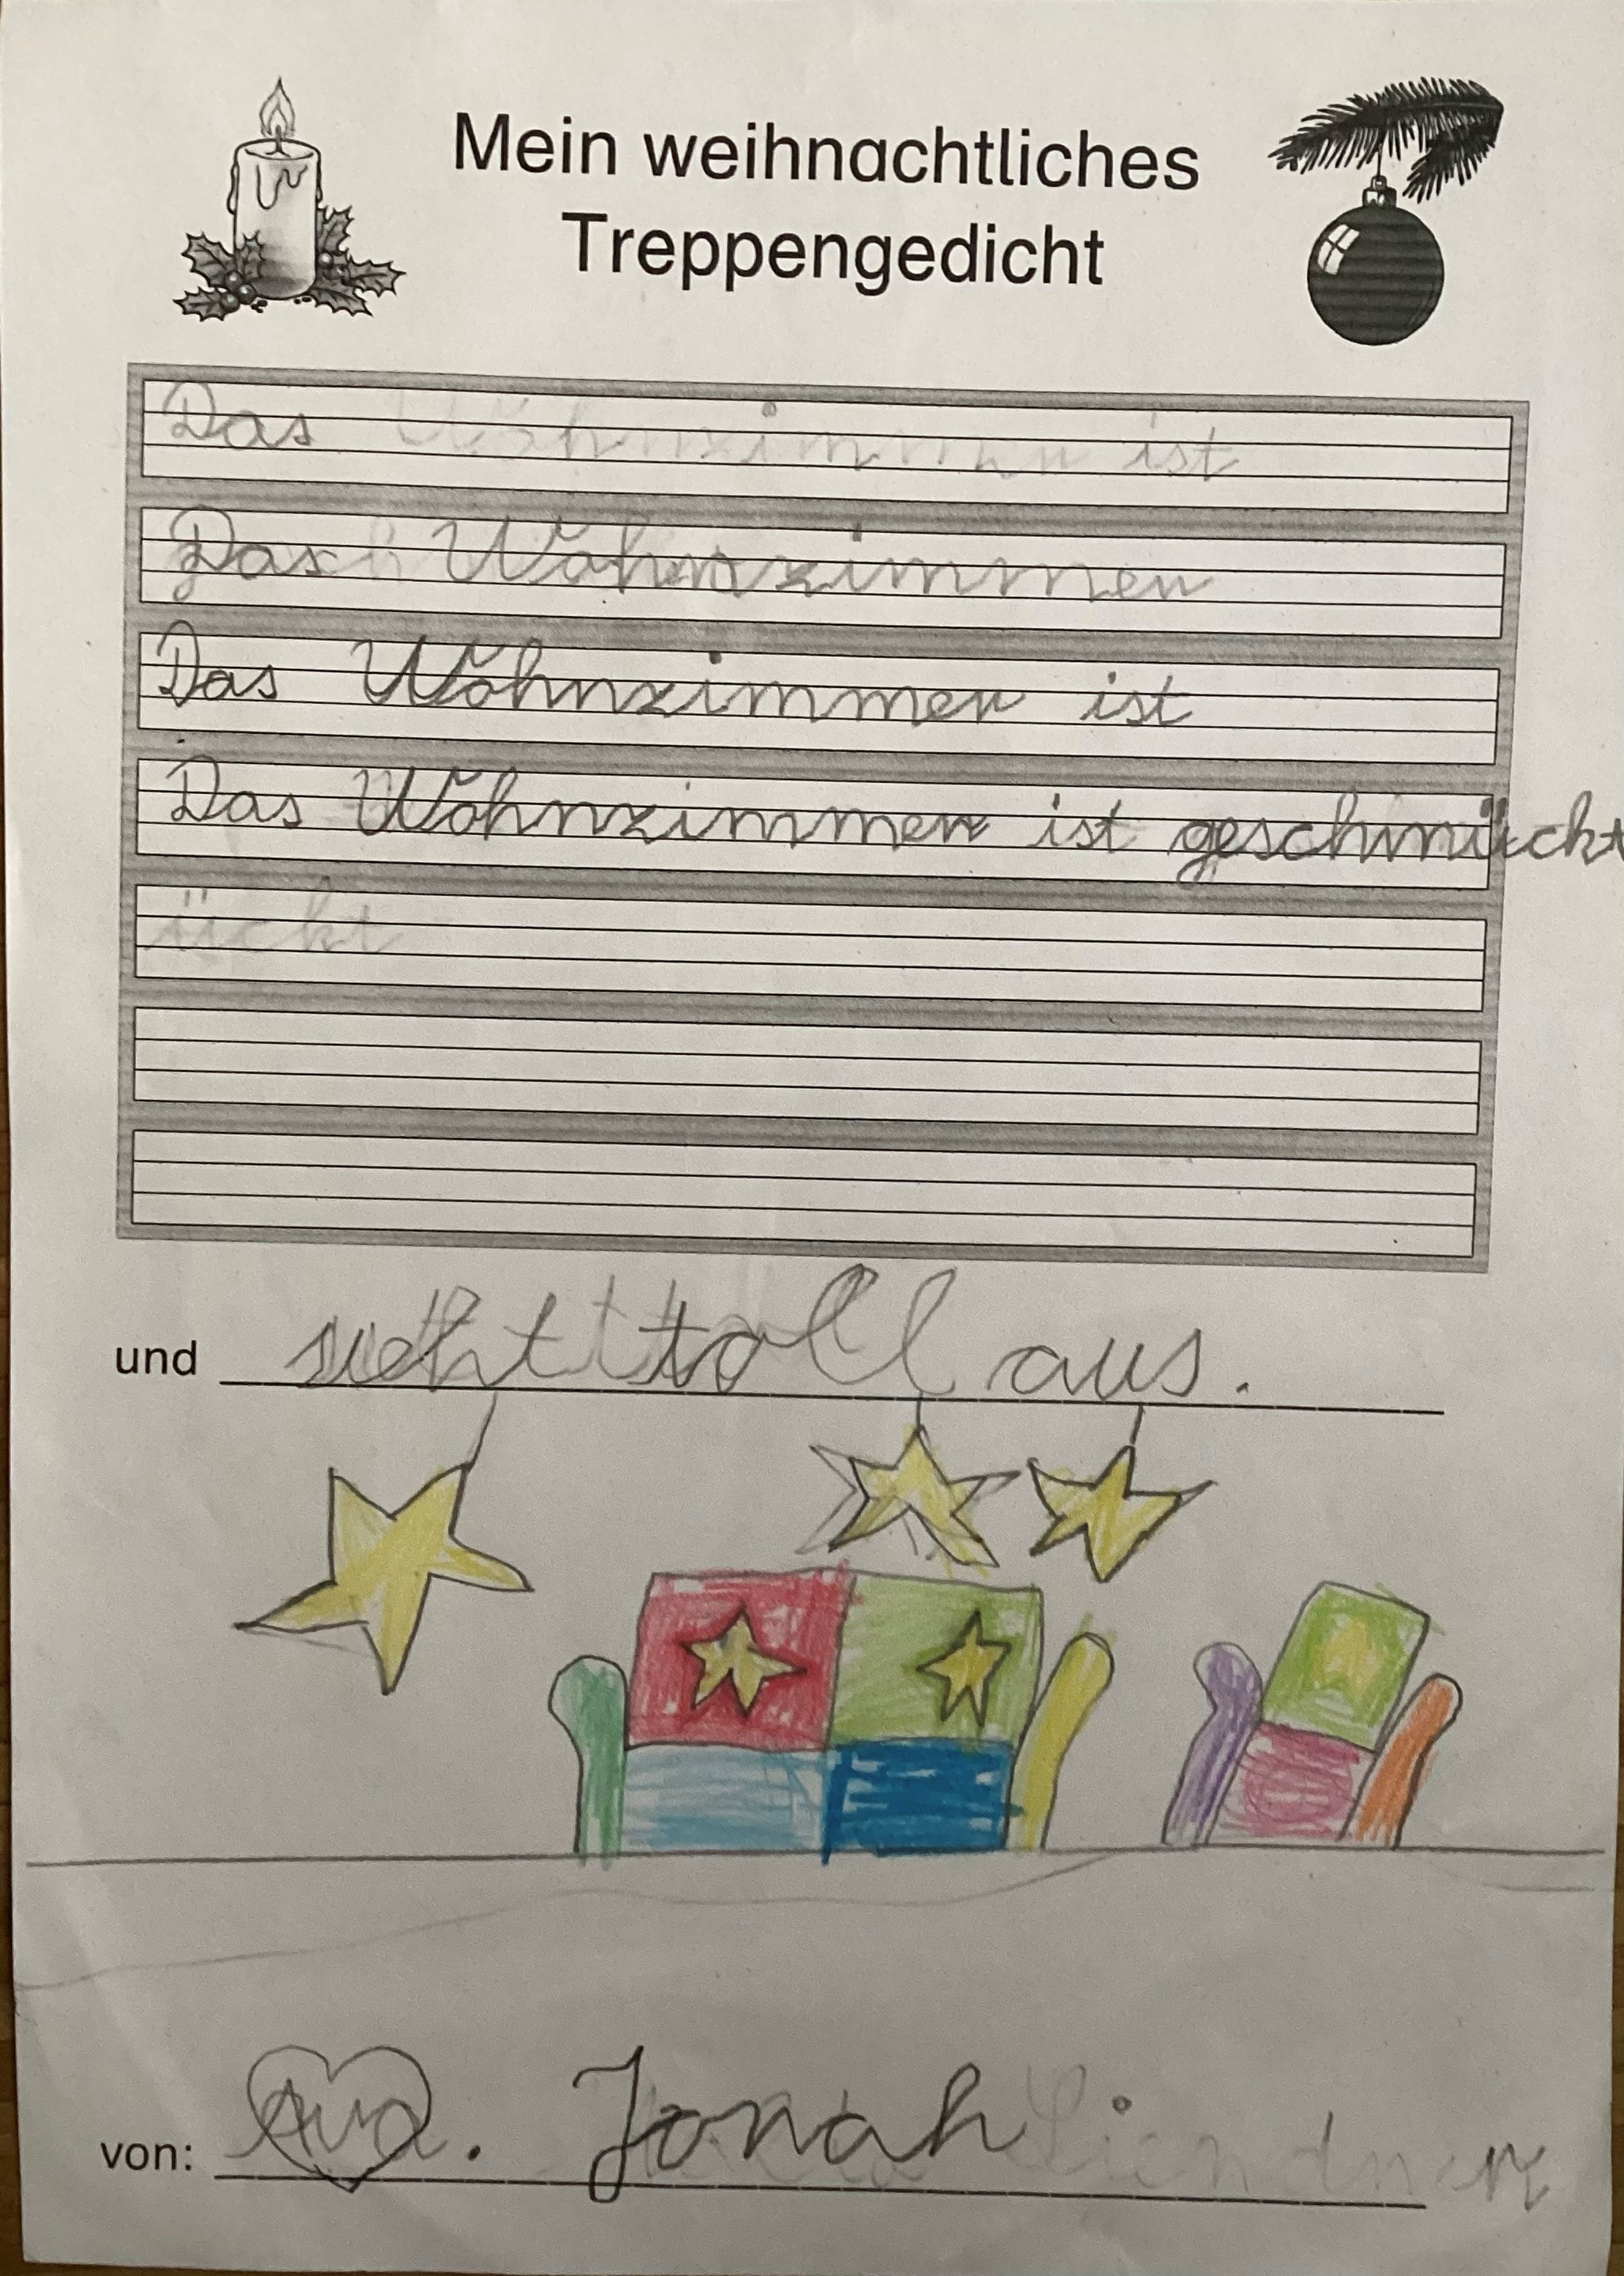 Mein weihnachtliches
Treppengedicht
Das Wohnzimmer ist
Das Wohnzimmer
Das Wohnzimmer ist
Das Wohnzimmer ist geschmückt
ückt
und sieht toll aus.
von: Jonah